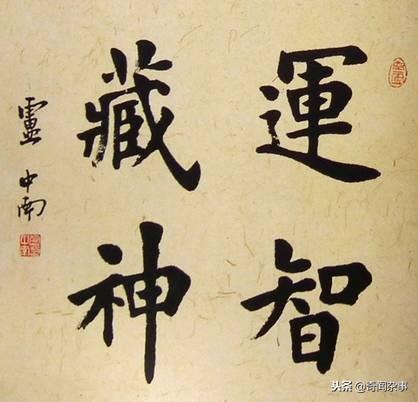 運智
藏神
盧中南
头条 @奇闻杂事